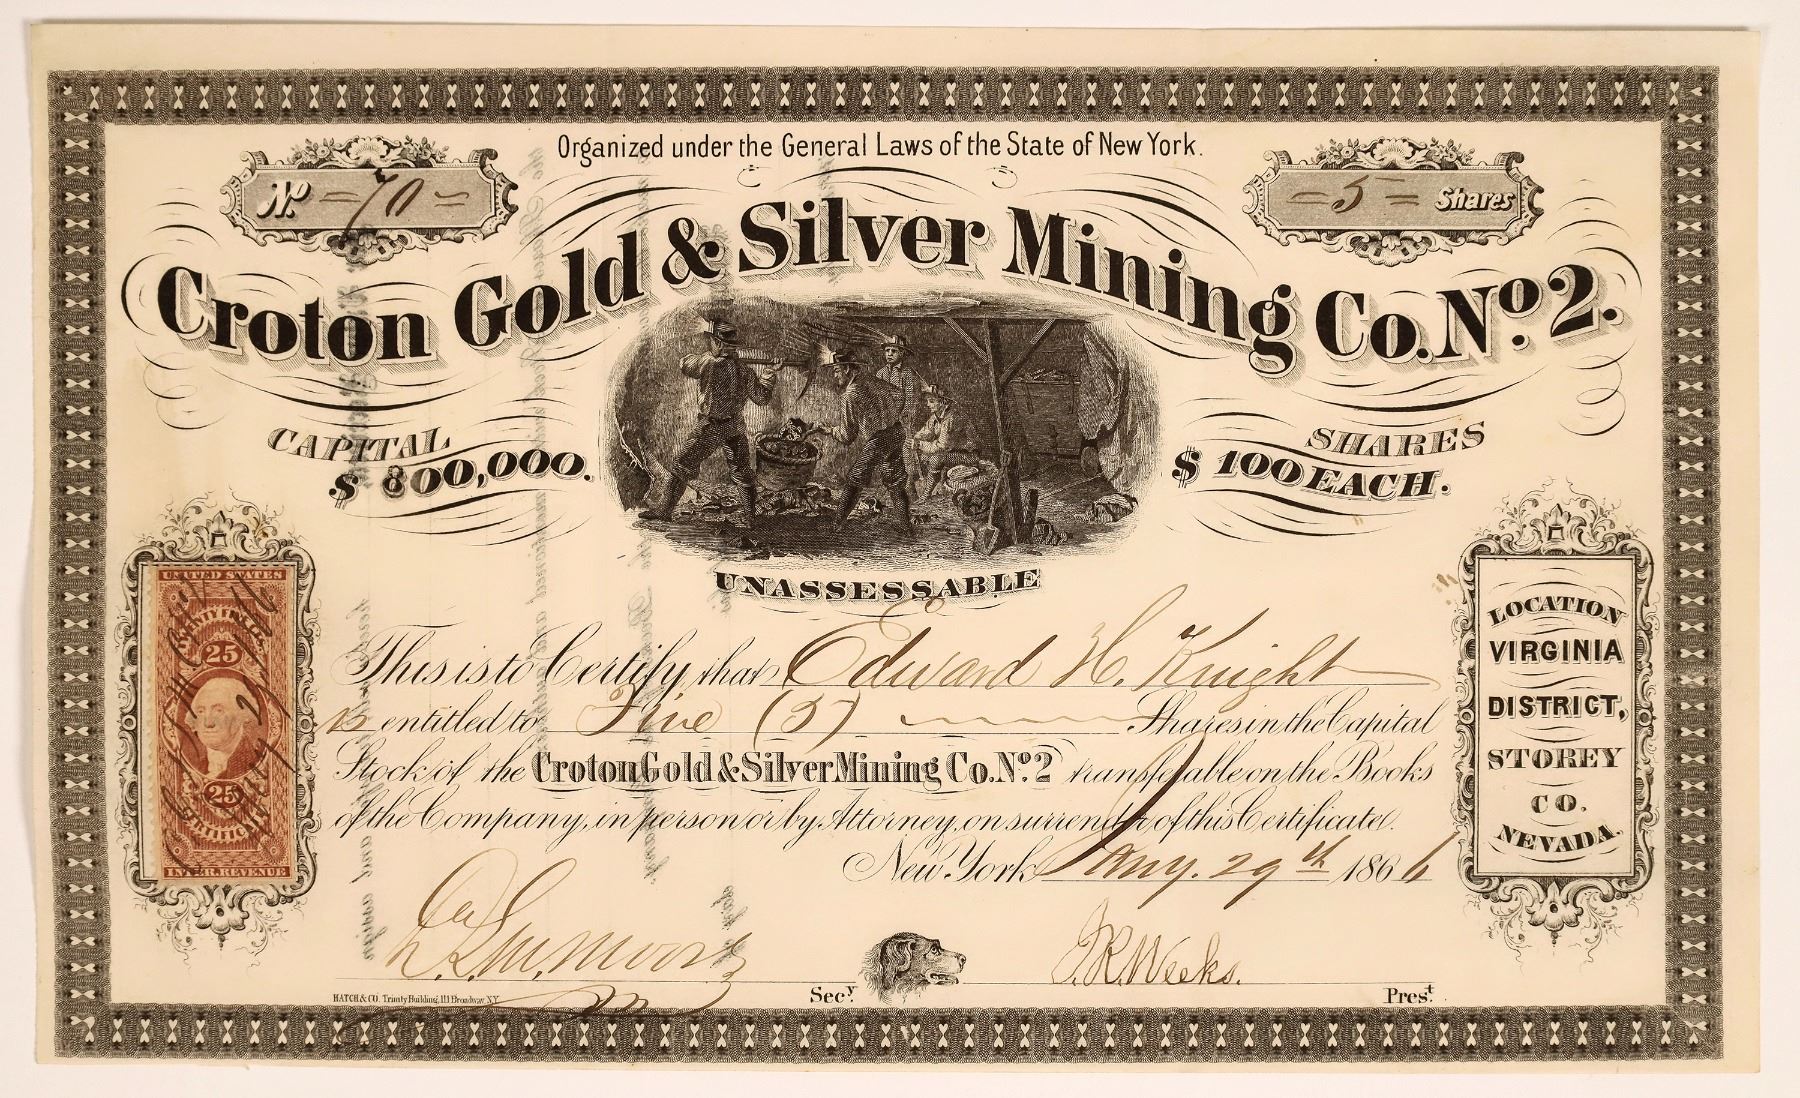 Organized under the General Laws of the State of New York.
No. = 70 =
= 5 = Shares
Croton Gold & Silver Mining Co. No. 2.
CAPITAL
$ 800,000.
SHARES
$ 100 EACH.
UNASSESSABLE
UNITED STATES
25
25
CERTIFICATE
INTER. REVENUE
LOCATION
VIRGINIA
DISTRICT,
STOREY
CO.
NEVADA.
This is to Certify that Edward H. Knight
is entitled to Five (5) Shares in the Capital
Stock of the Croton Gold & Silver Mining Co. No. 2 transferable on the Books
of the Company, in person or by Attorney, on surrender of this Certificate.
New York Jany. 29th 1866
Secy.
J.R. Weeks.
Prest.
HATCH & CO. Trinity Building, 111 Broadway, N.Y.